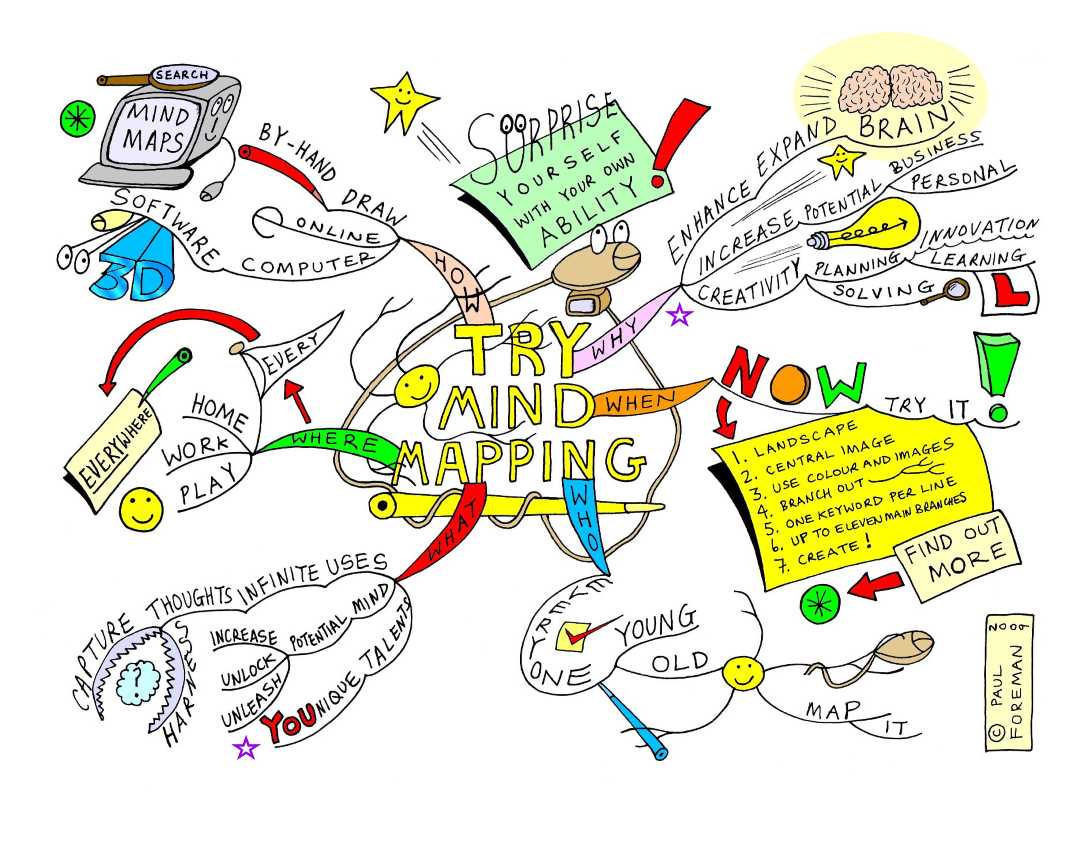 TRY
MIND
MAPPING
SURPRISE
YOURSELF
WITH YOUR OWN
ABILITY
HOW
DRAW
BY-HAND
ONLINE
COMPUTER
SOFTWARE
3D
SEARCH
MIND
MAPS
WHY
ENHANCE EXPAND BRAIN
INCREASE POTENTIAL
BUSINESS
PERSONAL
CREATIVITY
PLANNING
INNOVATION
LEARNING
SOLVING
L
WHEN
NOW
TRY IT
1. LANDSCAPE
2. CENTRAL IMAGE
3. USE COLOUR AND IMAGES
4. BRANCH OUT
5. ONE KEYWORD PER LINE
6. UP TO ELEVEN MAIN BRANCHES
7. CREATE!
FIND OUT
MORE
WHERE
EVERY
EVERYWHERE
HOME
WORK
PLAY
WHAT
INFINITE USES
THOUGHTS
CAPTURE
HARNESS
?
MIND
POTENTIAL
INCREASE
UNLOCK
UNLEASH
TALENTS
YOUNIQUE
WHO
EVERYONE
YOUNG
OLD
MAP
IT
© PAUL
FOREMAN
2009